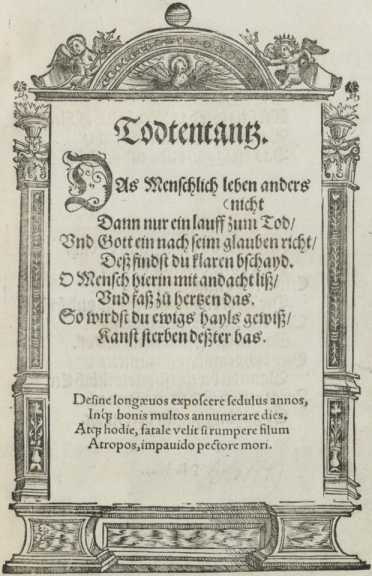 Todtentantz.
DAs Menschlich leben anders
nicht
Dann nur ein lauff zum Tod/
Vnd Gott ein nach seim glauben richt/
Deß findst du klaren bschayd.
O Mensch hierin mit andacht liß/
Vnd faß zů hertzen das.
So wirdst du ewigs hayls gewiß/
Kanst sterben deßter bas.
Desine longæuos exposcere sedulus annos,
Inq́; bonis multos annumerare dies,
Atq́; hodie, fatale velit si rumpere filum
Atropos, impauido pectore mori.